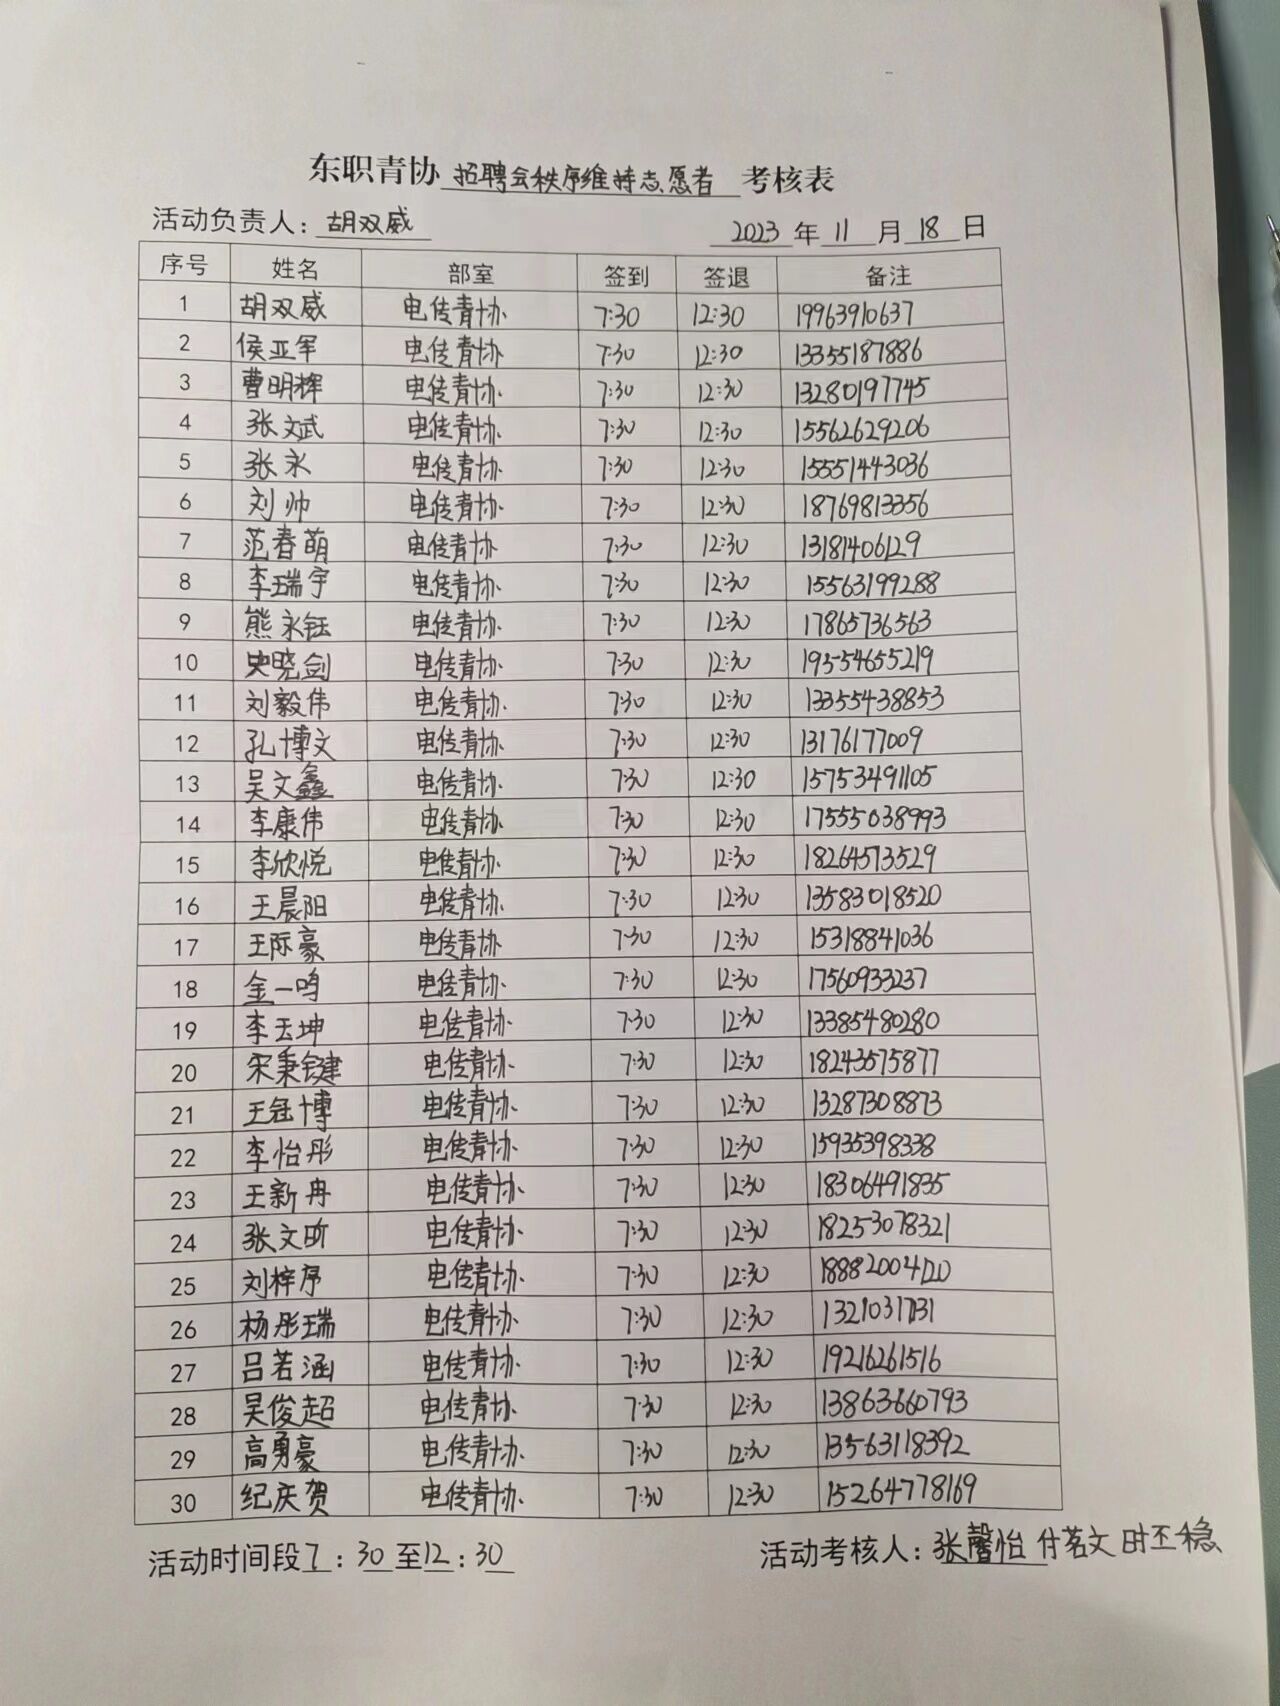 东职青协 招聘会秩序维持志愿者 考核表
活动负责人：胡双威 2023 年 11 月 18 日
序号 姓名 部室 签到 签退 备注
1 胡双威 电传青协 7:30 12:30 19963910637
2 侯亚军 电传青协 7:30 12:30 13355187886
3 曹明辉 电传青协 7:30 12:30 13280197745
4 张文武 电传青协 7:30 12:30 15562629206
5 张永 电传青协 7:30 12:30 15551443036
6 刘帅 电传青协 7:30 12:30 18769813356
7 范春萌 电传青协 7:30 12:30 13181406129
8 李瑞宇 电传青协 7:30 12:30 15563199288
9 熊永钰 电传青协 7:30 12:30 17865736563
10 史晓剑 电传青协 7:30 12:30 19554655219
11 刘毅伟 电传青协 7:30 12:30 13355438853
12 孔博文 电传青协 7:30 12:30 13176177009
13 吴文鑫 电传青协 7:30 12:30 15753491105
14 李康伟 电传青协 7:30 12:30 17555038993
15 李欣悦 电传青协 7:30 12:30 18264573529
16 王晨阳 电传青协 7:30 12:30 13583018520
17 王际豪 电传青协 7:30 12:30 15318841036
18 金一鸣 电传青协 7:30 12:30 17560933237
19 李玉坤 电传青协 7:30 12:30 13385480280
20 宋秉键 电传青协 7:30 12:30 18243575877
21 王钰博 电传青协 7:30 12:30 13287308873
22 李怡彤 电传青协 7:30 12:30 15935398338
23 王新冉 电传青协 7:30 12:30 18306491835
24 张文昕 电传青协 7:30 12:30 18253078321
25 刘梓序 电传青协 7:30 12:30
26 杨彤瑞 电传青协 7:30 12:30
27 吕若涵 电传青协 7:30 12:30 19216261516
28 吴俊超 电传青协 7:30 12:30 13863660793
29 高勇豪 电传青协 7:30 12:30 13563118392
30 纪庆贺 电传青协 7:30 12:30 15264778169
活动时间段 7：30至12：30 活动考核人：张馨怡 付茗文 时丕稳